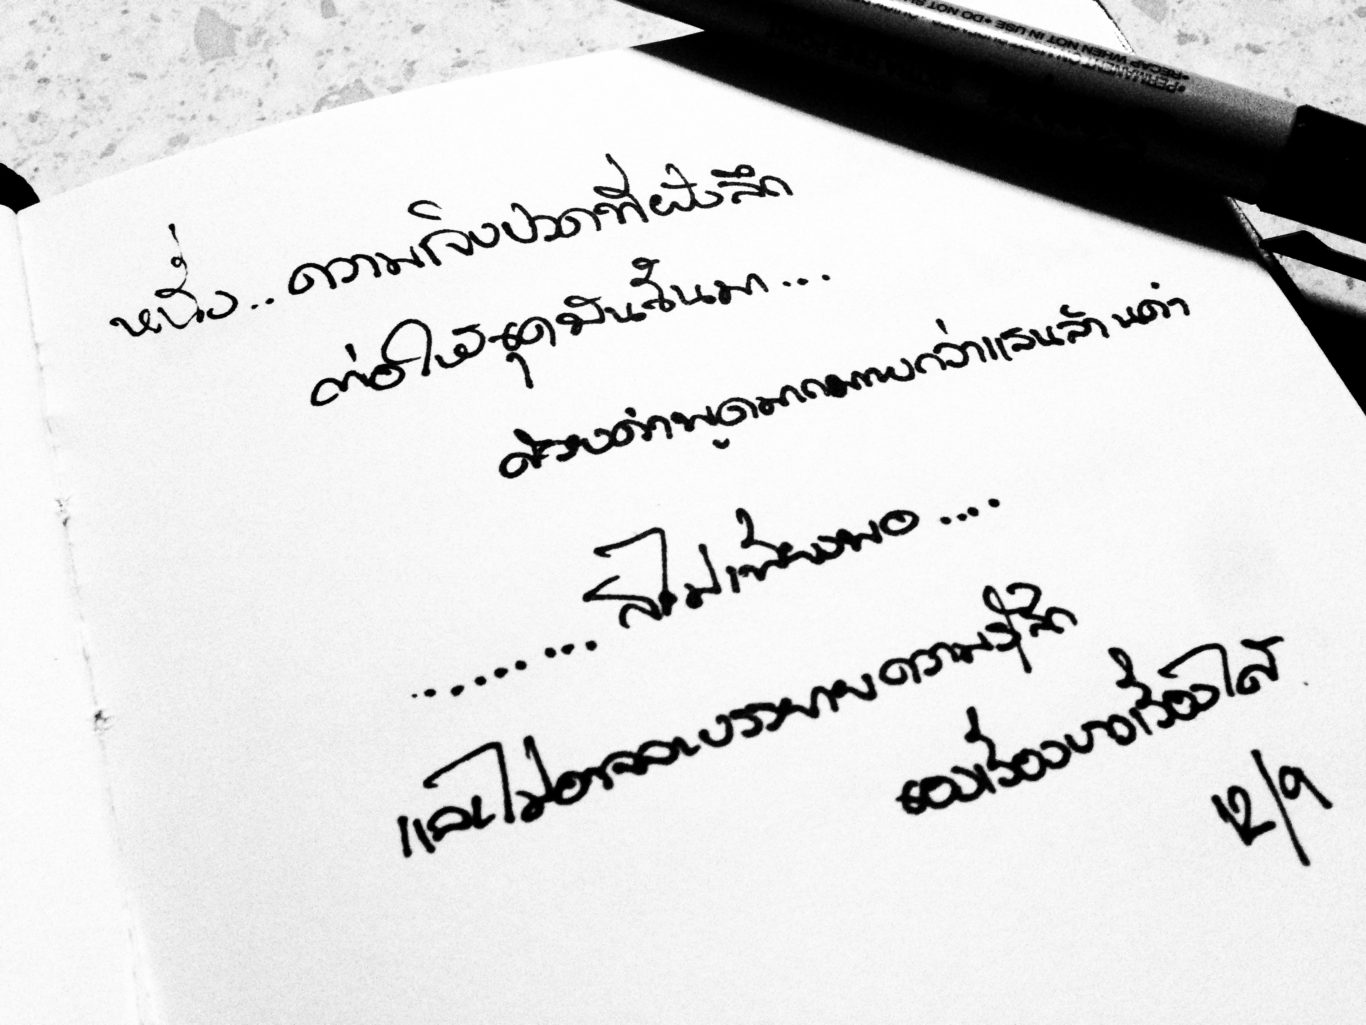 •PERMANENT ON
•RECAP WHEN NOT IN USE •DO NOT
หนึ่ง.. ความเจ็บปวดที่ฝังลึก
ต่อให้ขุดมันขึ้นมา...
ด้วยคำพูดมากมายกว่าแสนล้านคำ
........ก็ไม่เพียงพอ....
และไม่อาจจะบรรยายความรู้สึก
12/9